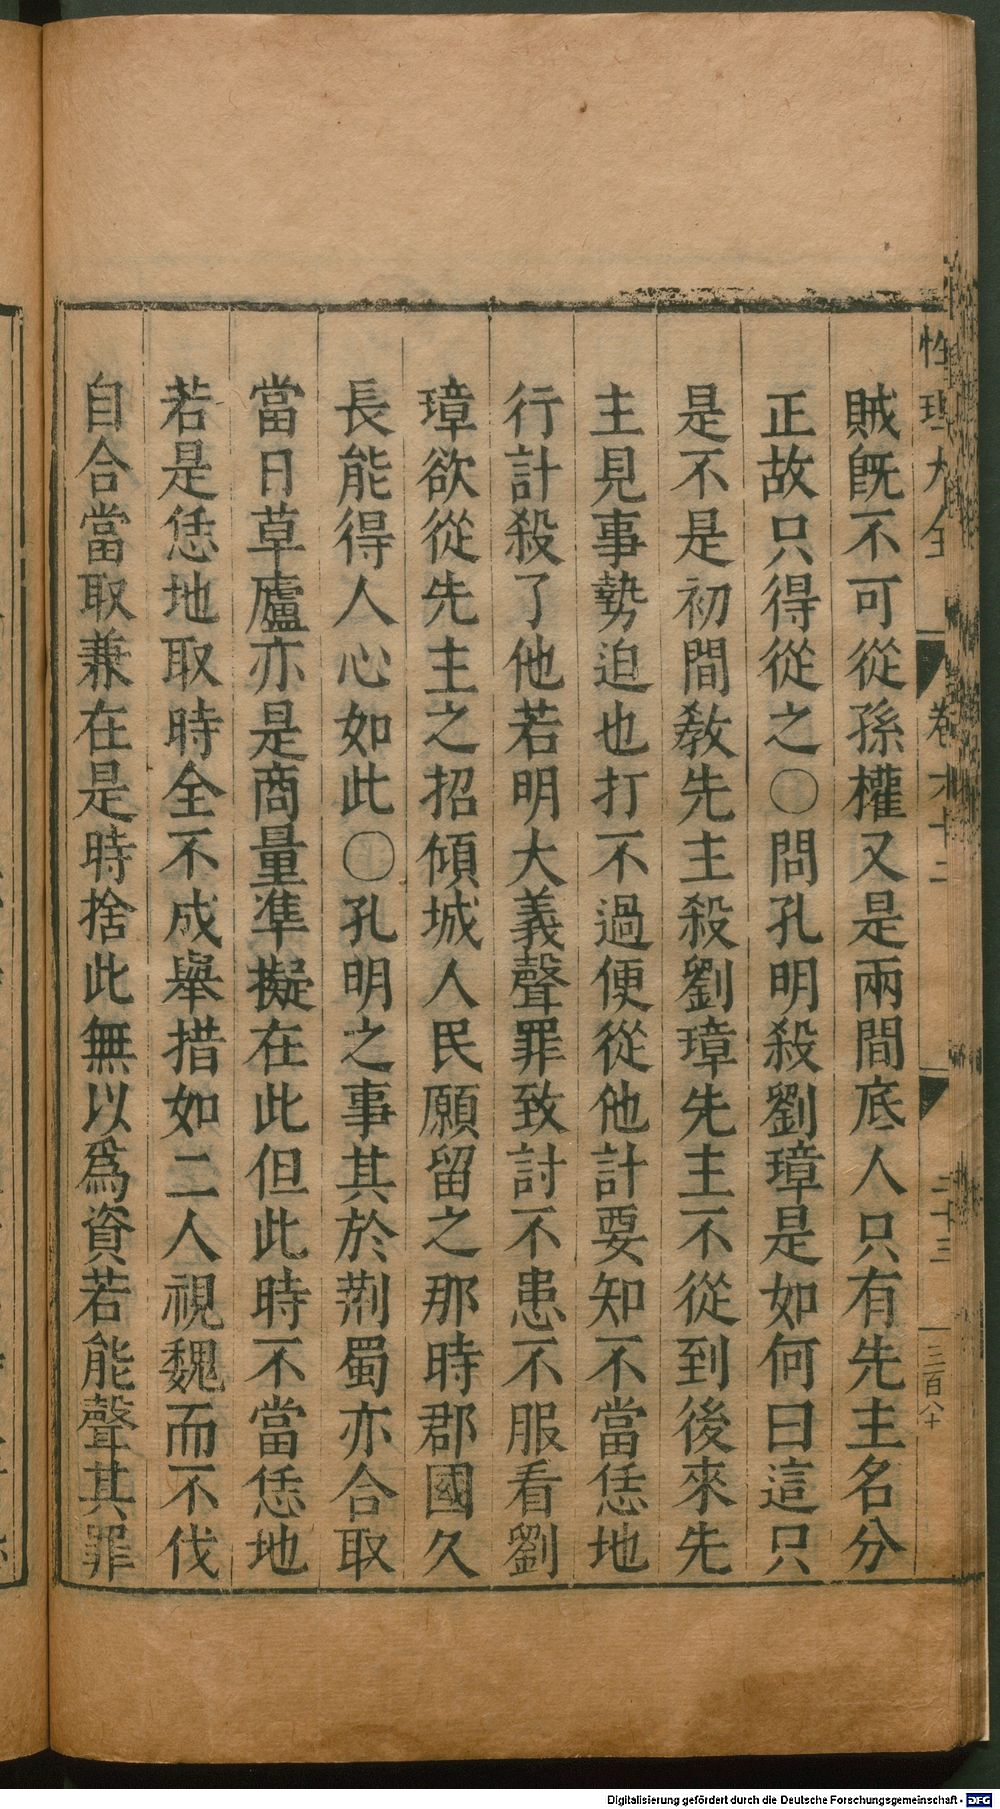 性理大全 卷六十二 二十三 三百八十
賊旣不可從孫權又是兩間底人只有先主名分
正故只得從之〇問孔明殺劉璋是如何曰這只
是不是初間敎先主殺劉璋先主不從到後來先
主見事勢迫也打不過便從他計要知不當恁地
行計殺了他若明大義聲罪致討不患不服看劉
璋欲從先主之招傾城人民願留之那時郡國久
長能得人心如此〇孔明之事其於荆蜀亦合取
當日草廬亦是商量準擬在此但此時不當恁地
若是恁地取時全不成舉措如二人視魏而不伐
自合當取兼在是時捨此無以爲資若能聲其罪
Digitalisierung gefördert durch die Deutsche Forschungsgemeinschaft - DFG